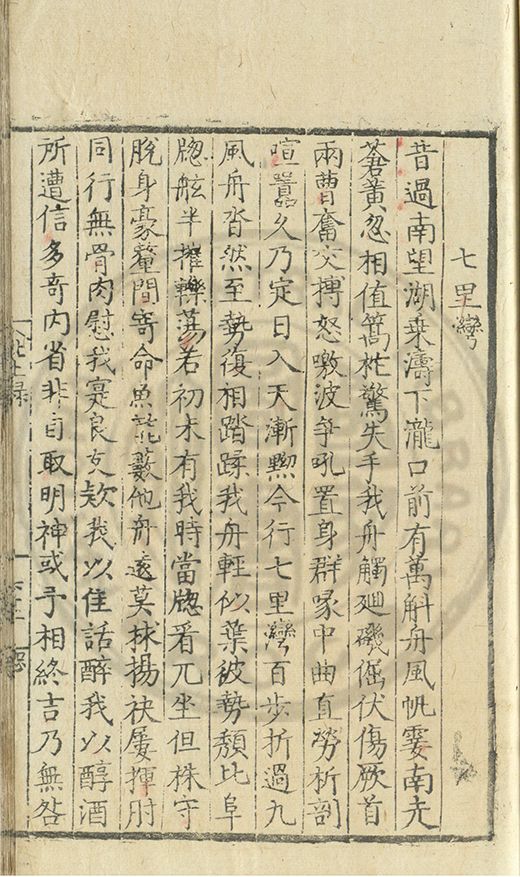 七里灣
昔過南望湖乘濤下瀧口前有萬斛舟風帆霎南走
蒼黃忽相值篙柁驚失手我舟觸廻磯傴伏傷厥首
兩曹奮交搏怒噭波爭吼置身群喙中曲直勞析剖
喧囂久乃定日入天漸黝今行七里灣百步折過九
風舟沓然至勢復相踏蹂我舟輕似葉彼勢頹比阜
牕舷半摧轢蕩若初未有我時當牕看兀坐但株守
脫身豪釐間寄命魚龍藪他舟遠莫捄揚袂屢揮肘
同行無骨肉慰我寔良友欵我以佳話醉我以醇酒
所遭信多奇內省非自取明神或予相終吉乃無咎